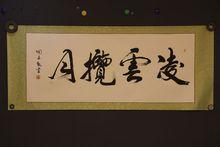 凌雲攬月